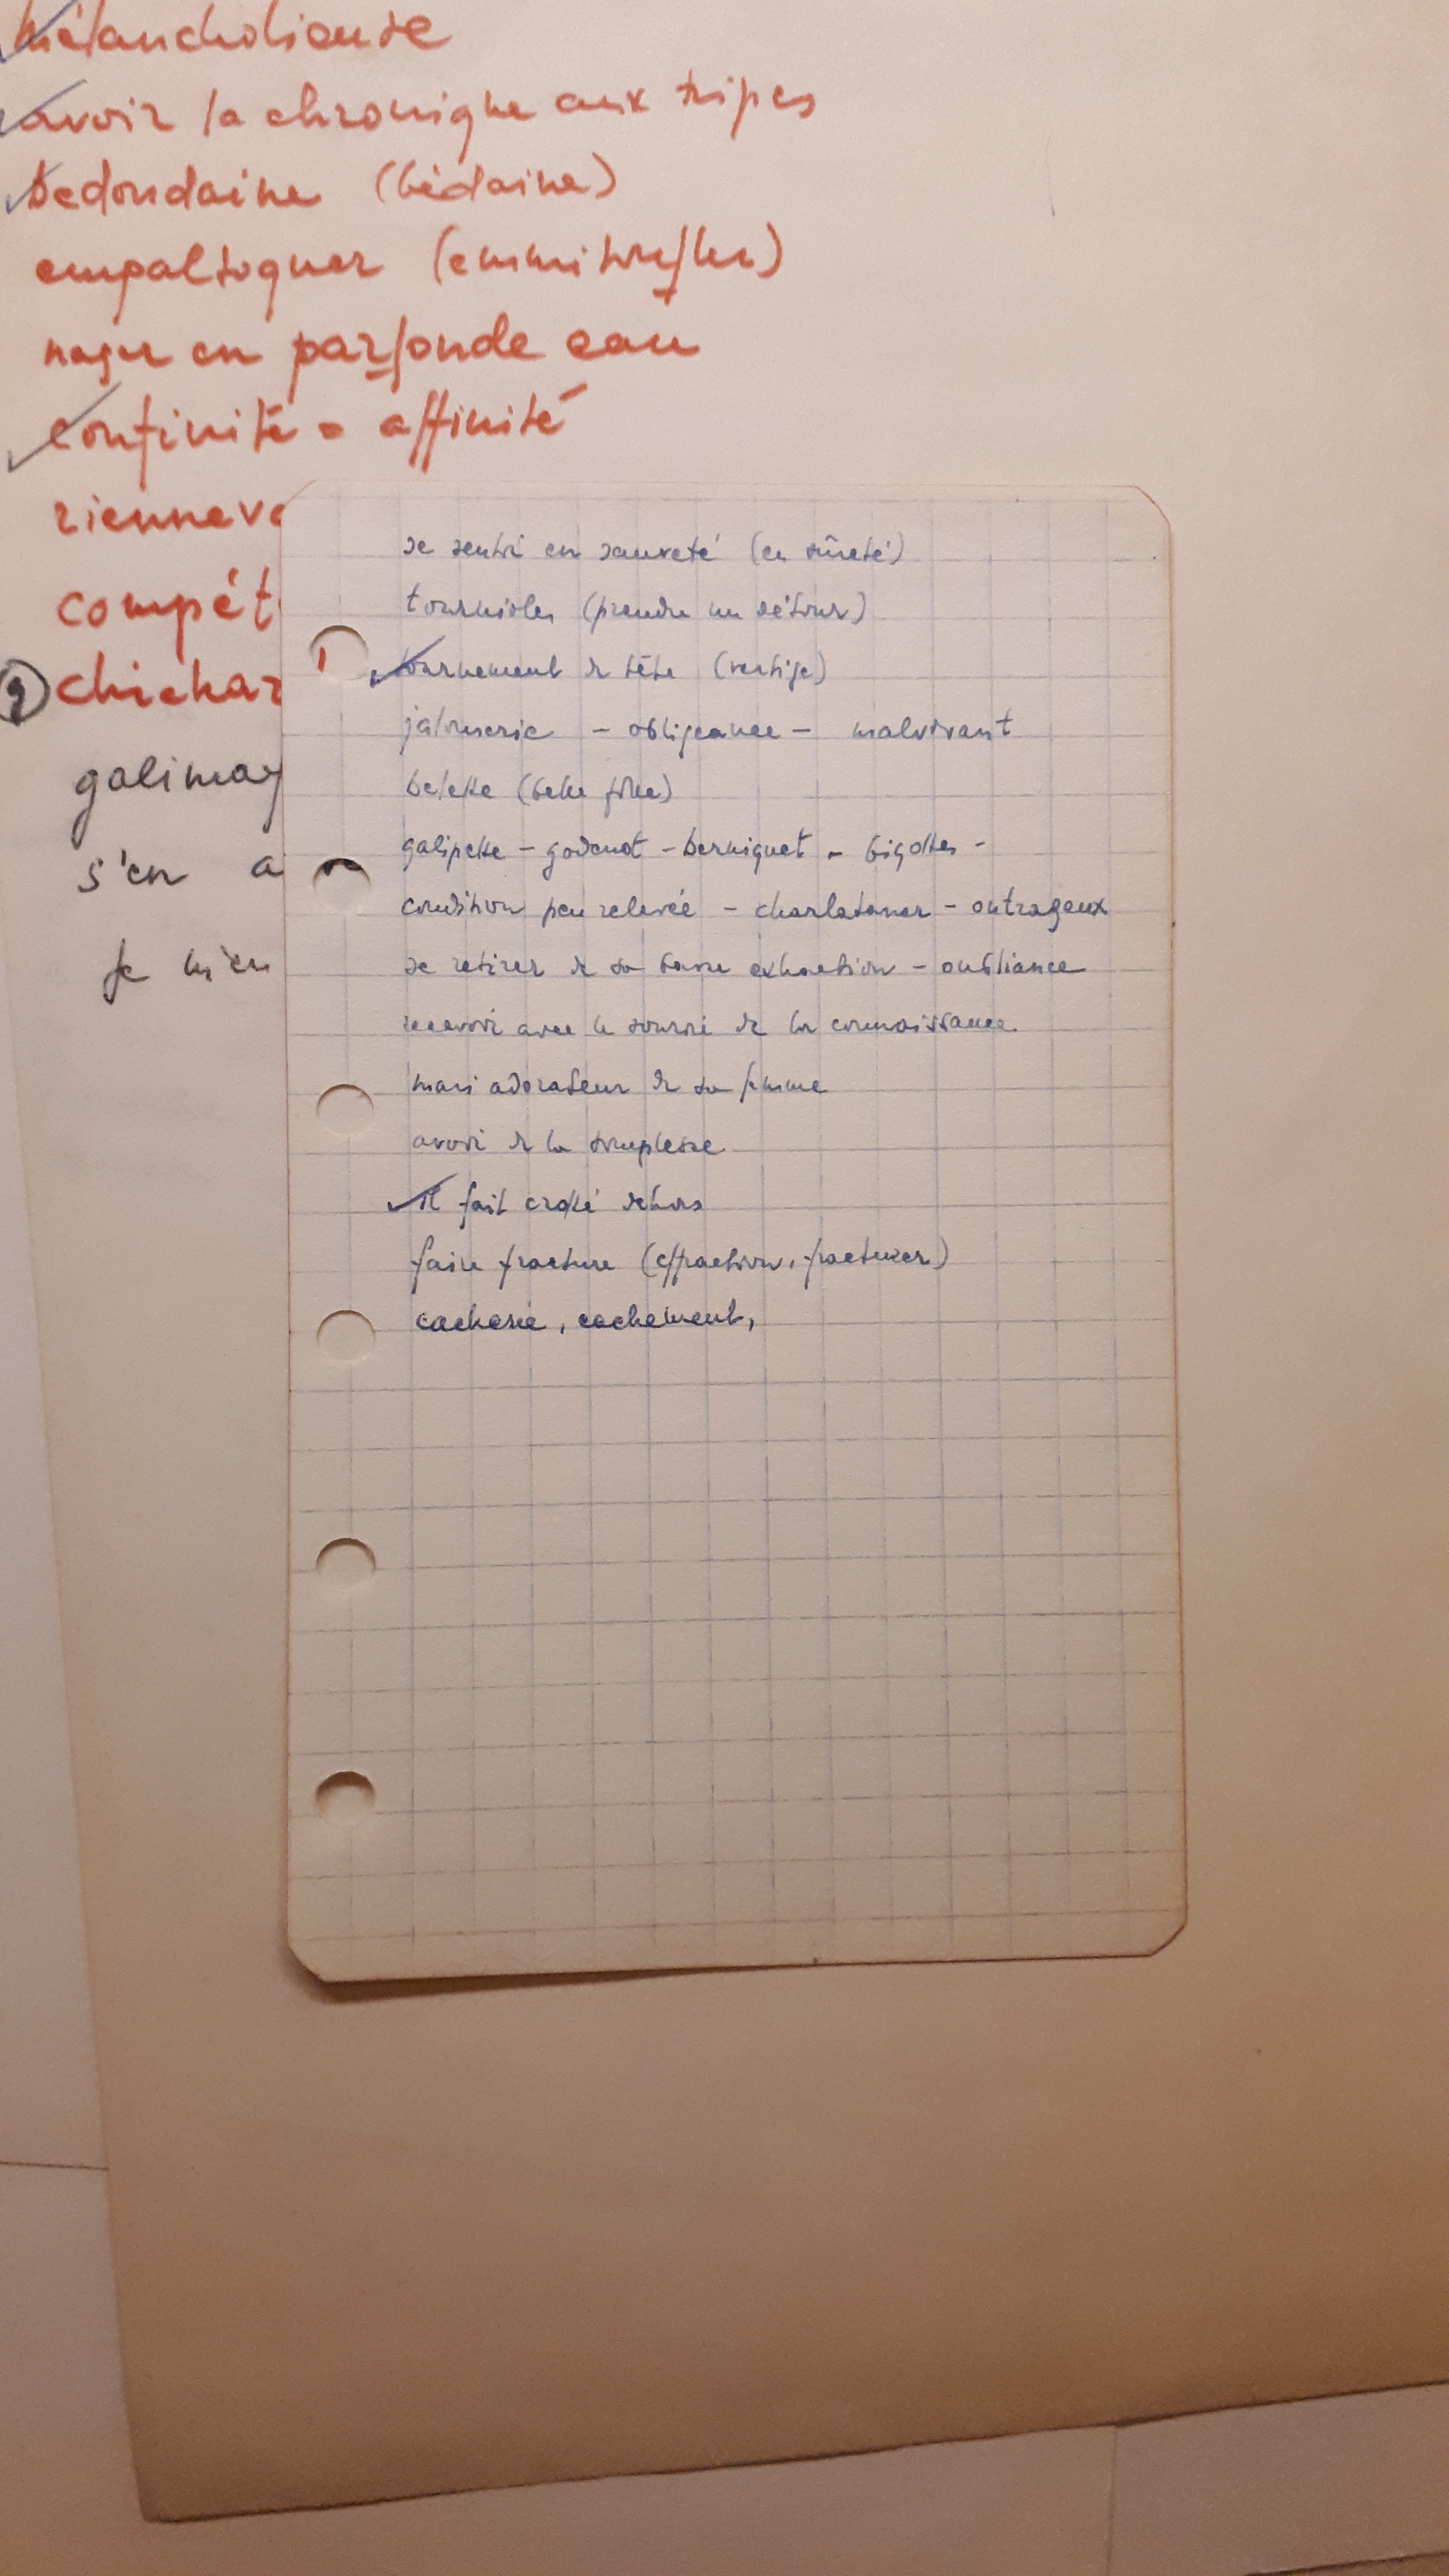 mélancholieuse
avoir la chronique aux tripes
bedondaine (bédaine)
empaltoquer (emmitoufler)
nager en parfonde eau
confinité = affinité
rienneva
compét
② chichar
galimaf
s'en a
je m'en
se sentir en sauveté (en sûreté)
tournioles (prendre un détour)
tournement de tête (vertige)
jalouserie - obligeance - malvivant
belette (belle fille)
galipette - godenot - berniquet - bigottes -
condition peu relevée - charlataner - outrageux
se retirer de sa basse extraction - oubliance
recevoir avec le sourire de la connaissance
mari adorateur de sa femme
avoir de la souplesse
il fait crotté dehors
faire fracture (effraction, fracturer)
cacherie, cachement,